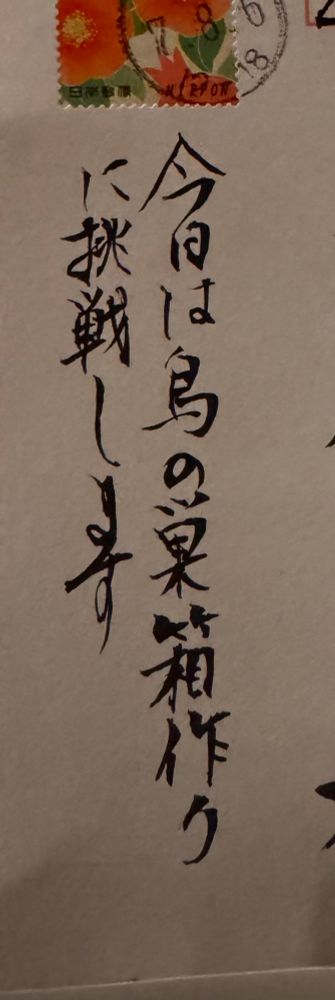 日本郵便 NIPPON
7 8 6
18
今日は鳥の巣箱作り
に挑戦します